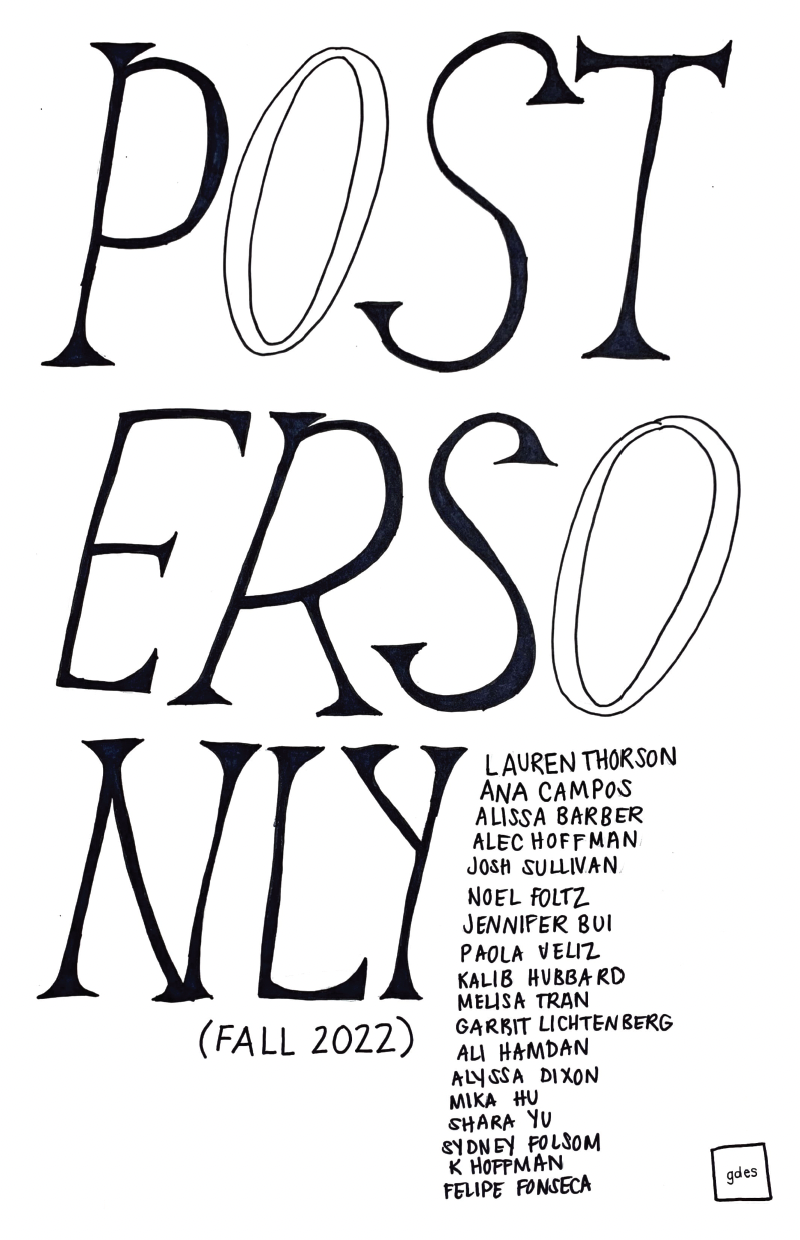 POST
ERSO
NLY
LAUREN THORSON
ANA CAMPOS
ALISSA BARBER
ALEC HOFFMAN
JOSH SULLIVAN
NOEL FOLTZ
JENNIFER BUI
PAOLA VELIZ
KALIB HUBBARD
MELISA TRAN
GARRIT LICHTENBERG
ALI HAMDAN
ALYSSA DIXON
MIKA HU
SHARA YU
SYDNEY FOLSOM
K HOFFMAN
FELIPE FONSECA
(FALL 2022)
gdes